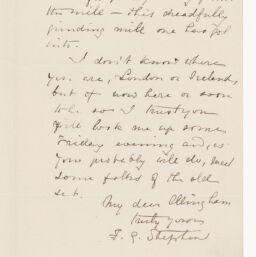 the mill – this dreadfully
grinding mill one has got
into.
I don't know where
you are, London or Ireland,
but if now here or soon
to be so I trust you
will look me up some
Friday evening and, as
you probably will do, meet
some folks of the old
set.
My dear Allingham
truly yours
F. G. Stephens